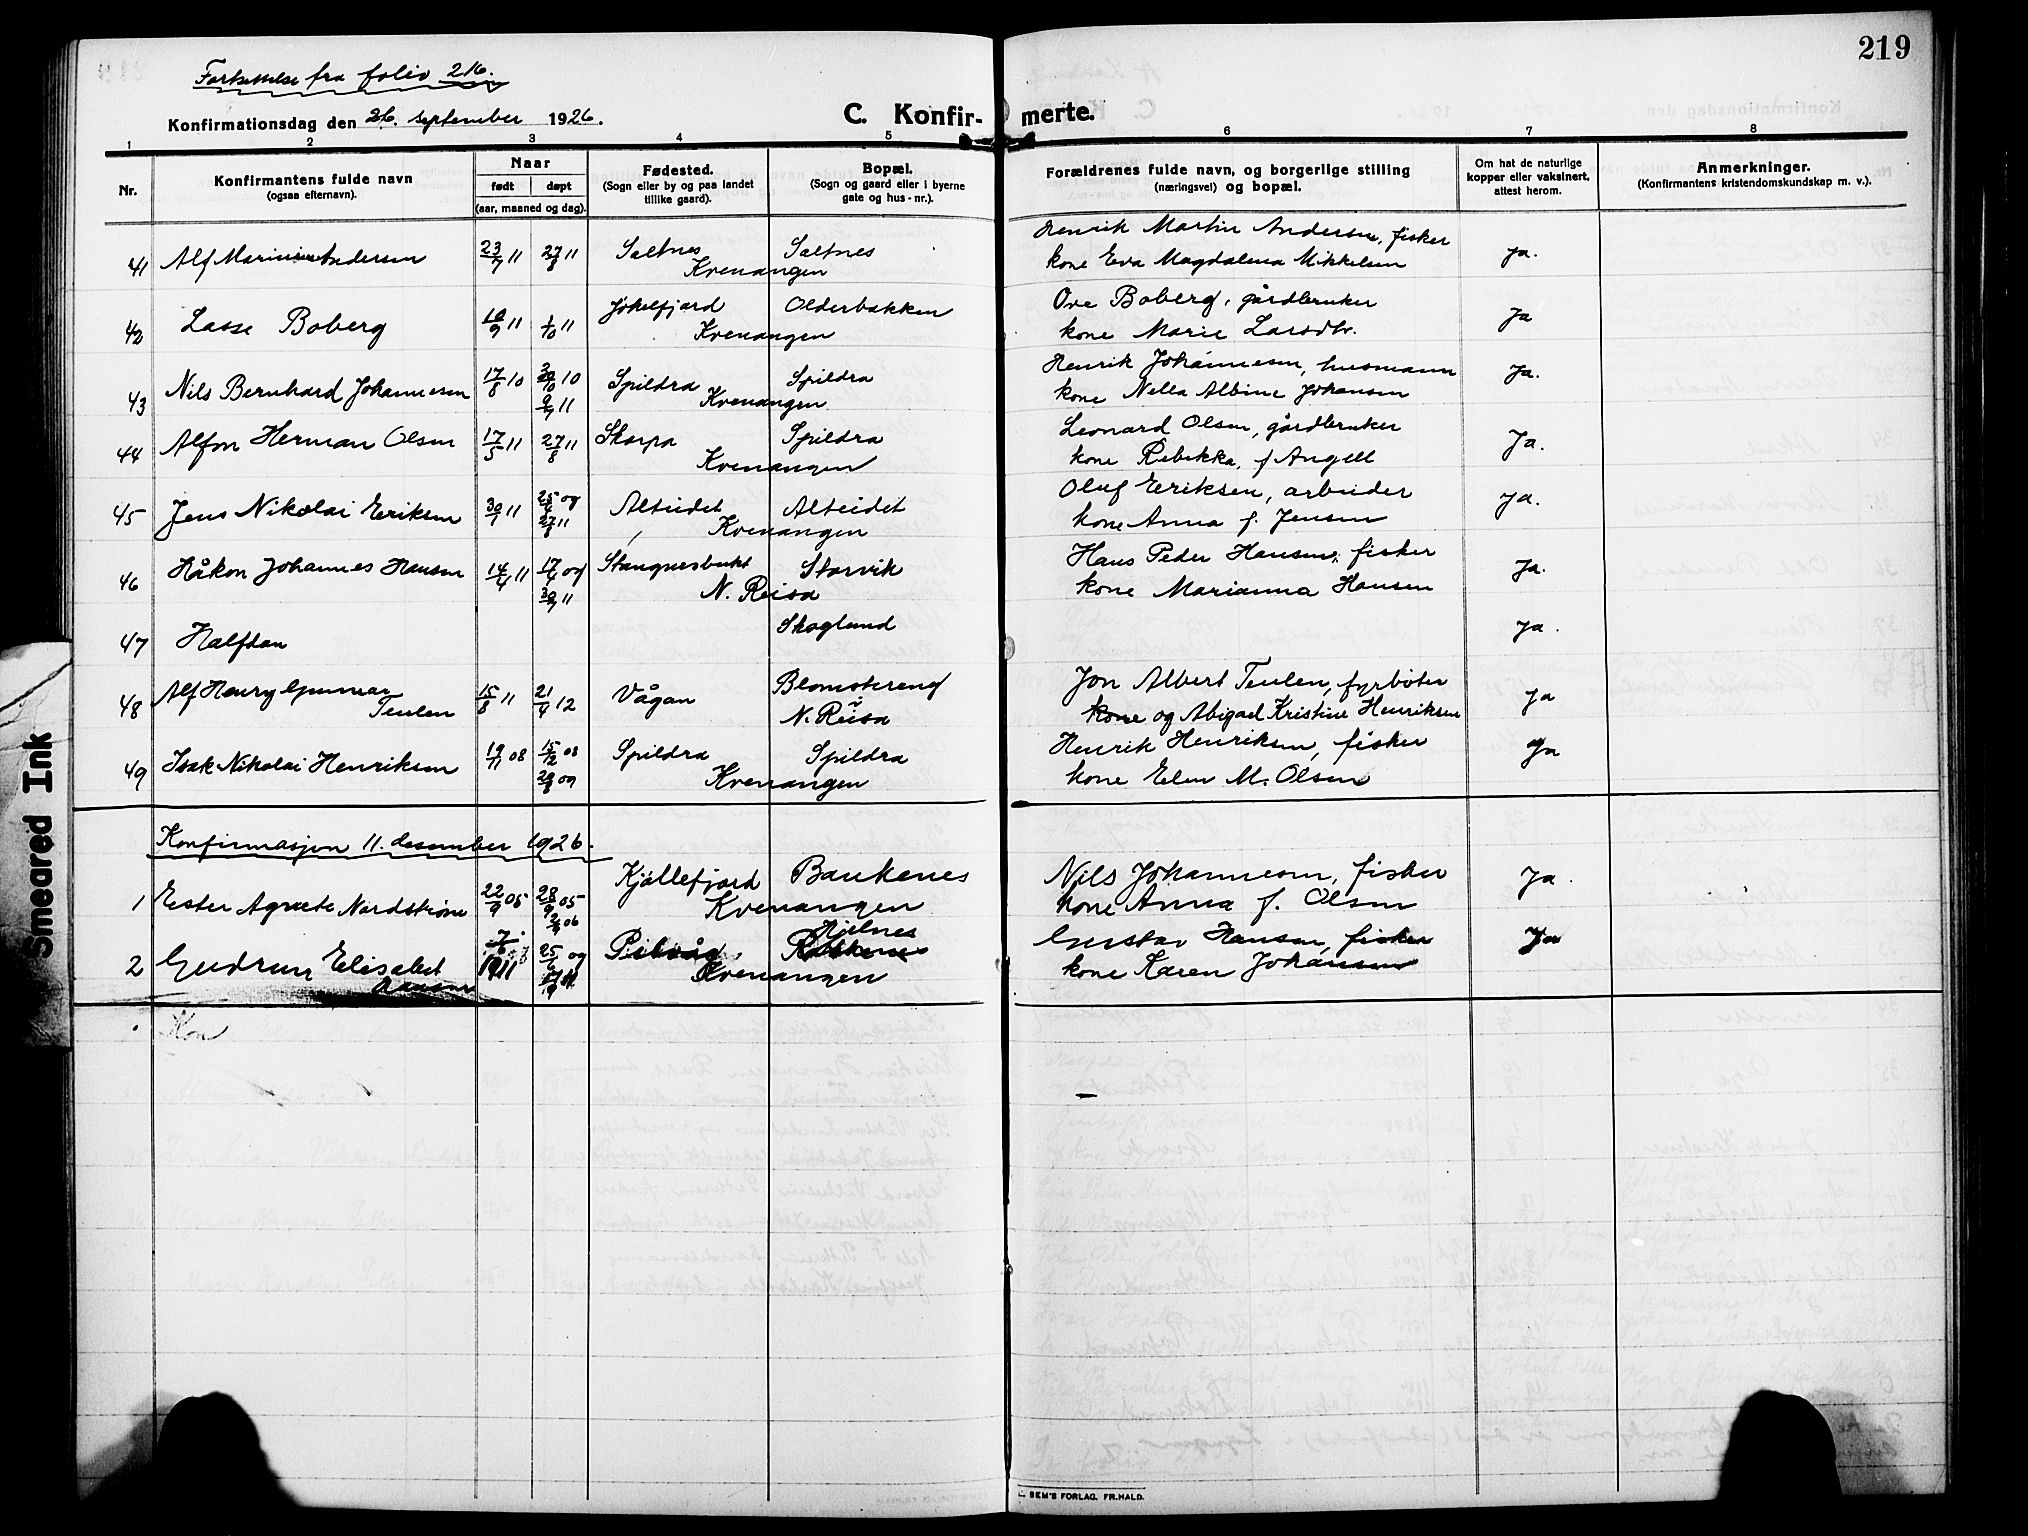 219
Fortsettelse fra folio 216.
Konfirmationsdag den 26. september 1926.
C. Konfir- merte.
1 2 3 4 5 6 7 8
Nr.
Konfirmantens fulde navn
(ogsaa efternavn).
Naar
født døpt
(aar, maaned og dag).
Fødested.
(Sogn eller by og paa landet
tillike gaard).
Bopæl.
(Sogn og gaard eller i byerne
gate og hus-nr.).
Forældrenes fulde navn, og borgerlige stilling
(næringsvei) og bopæl.
Om hat de naturlige
kopper eller vaksinert,
attest herom.
Anmerkninger.
(Konfirmantens kristendomskundskap m. v.).
41 Alf Marinius Andersen 23/7 11 27/8 11 Saltnes Saltnes Henrik Martin Andersen, fisker ja.
Kvenangen kone Eva Magdalena Mikkelsen
42 Lasse Boberg 10/9 11 1/10 11 Jøkelfjord Olderbakken Ove Boberg, gårdbruker Ja
Kvenangen kone Marie Larsdtr.
43 Nils Bernhard Johannesen 17/8 10 30/10 10 Spildra Spildra Henrik Johannesen, husmann Ja.
9/7 11 Kvenangen kone Nella Albine Johansen
44 Alfon Herman Olsen 17/5 11 27/8 11 Skorpa Spildra Leonard Olsen, gårdbruker Ja.
Kvenangen kone Rebekka, f Angell
45 Jens Nikolai Eriksen 30/1 11 25/4 og Alteidet Alteidet Oluf Eriksen, arbeider Ja.
27/8 11 Kvenangen kone Anna f. Jensen
46 Håkon Johannes Hansen 14/4 11 17/4 og Stangnesbukt Storvik Hans Peder Hansen, fisker Ja.
30/7 11 N. Reisa kone Marianna Hansen
47 Halfdan Skogland Ja.
48 Alf Henry Gunnar 15/8 11 21/4 12 Vågan Blomstereng Jon Albert Teulen, fyrbøter Ja
Teulen i N. Reisa kone og Abigael Kristine Henriksen
49 Isak Nikolai Henriksen 19/11 08 15/12 08 Spildra Spildra Henrik Henriksen, fisker Ja
29/8 09 Kvenangen kone Elen M. Olsen
Konfirmasjon 11. desember 1926.
1 Ester Agnete Nordstrøm 22/9 05 28/9 05 Kjøllefjord Baukenes Nils Johannesen, fisker Ja.
06 Kvenangen kone Anna f. Olsen
2 Gudrun Elisabet 7/6 1911 25/6 og Hjelnes Gustav Hansen, fisker Ja
Hansen Kvenangen kone Karen Johansen
Kon
E. SEM'S FORLAG, FR.HALD.
Smeared Ink